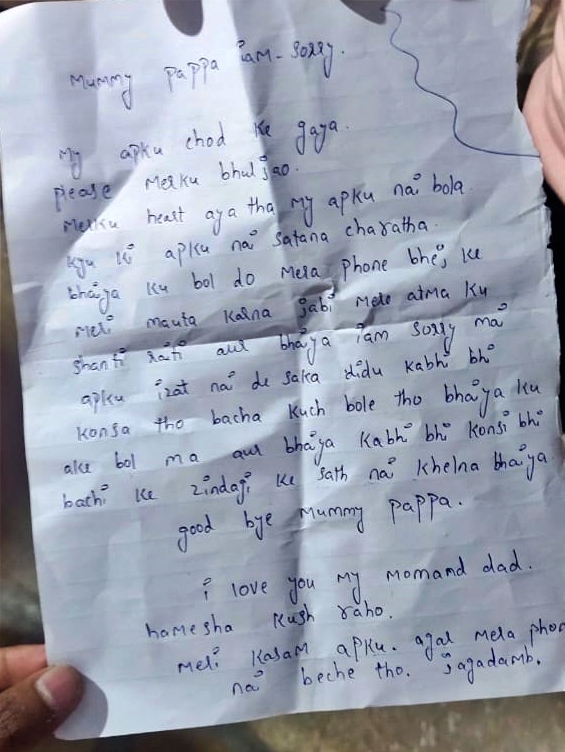 Mummy pappa iam-sorry.
My apku chod ke gaya.
please Merku bhul jao.
Merku heart aya tha my apku nai bola
kyu ki apku nai satana charatha.
bhaiya ku bol do mera phone bhej ke
meri mauta karna jabi mere atma ku
shanti raiti aur bhaiya iam sorry mai
apku izat nai de saka didu kabhi bhi
konsa tho bacha kuch bole tho bhaiya ku
ake bol ma aur bhaiya kabhi bhi konsi bhi
bachi ke zindagi ke sath nai khelna bhaiya.
good bye Mummy pappa.
i love you my momand dad.
hamesha kush raho.
meri kasam apku. agar mera phon
nai beche tho. jagadamb.